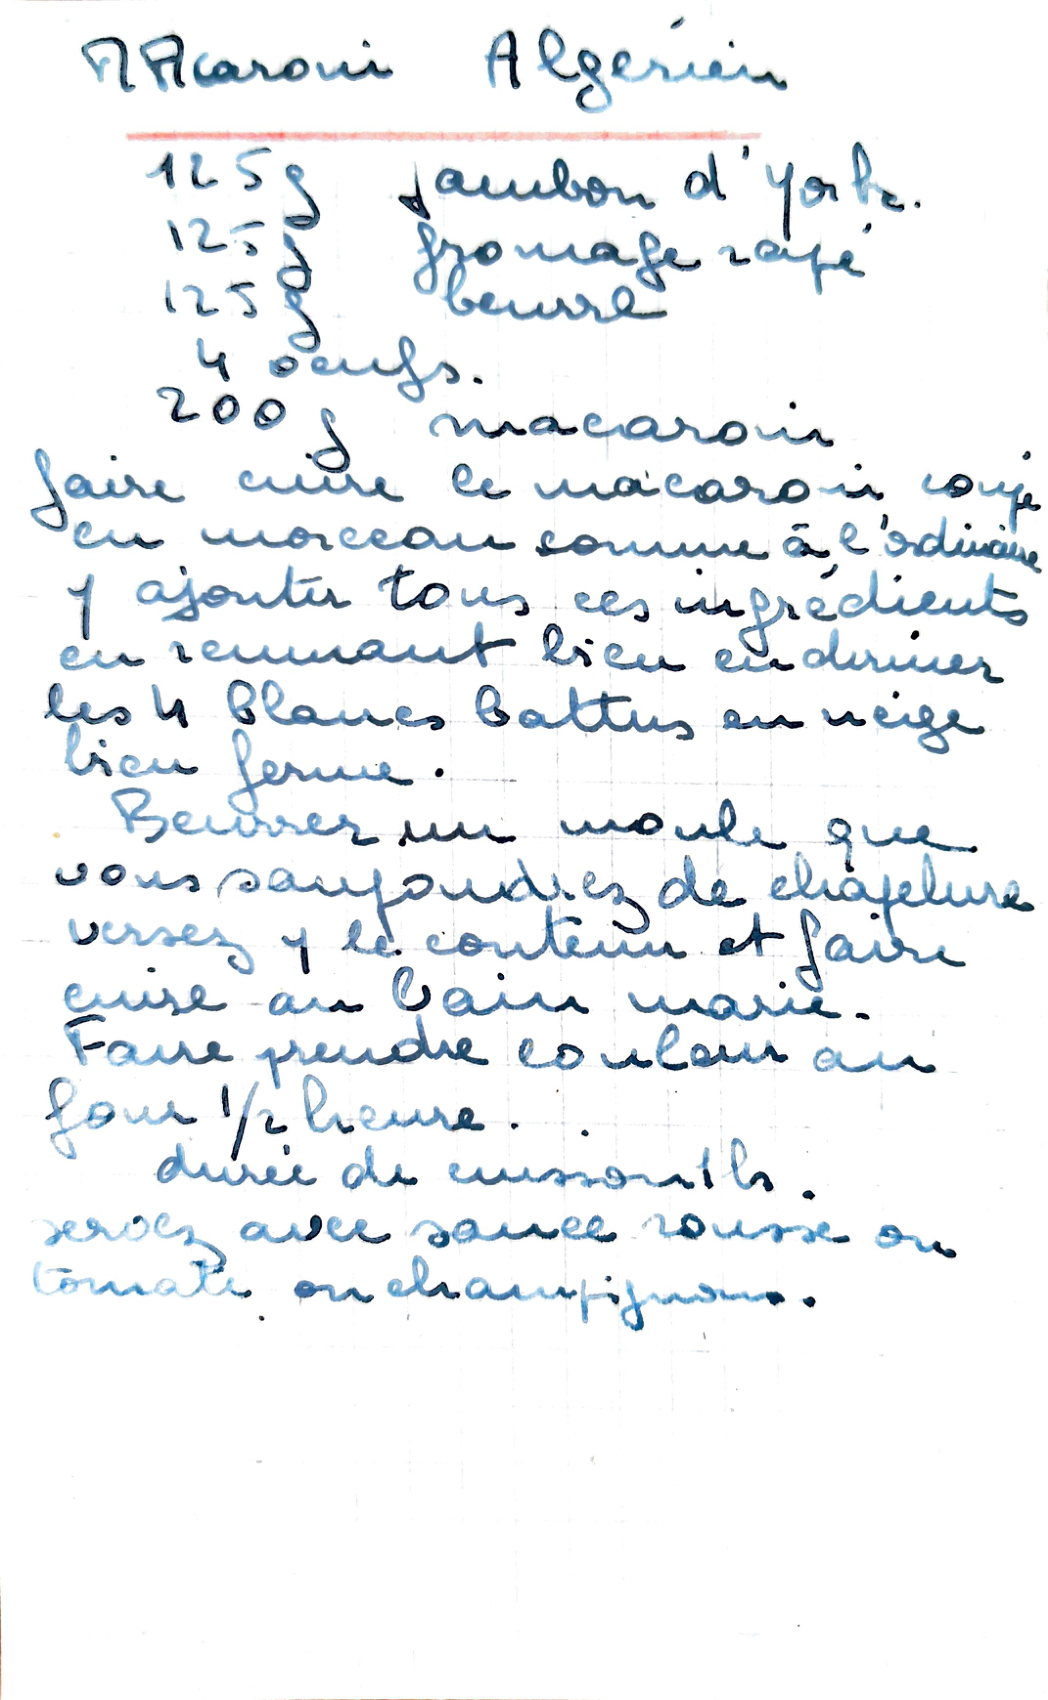 Macaroni Algérien
125 g jambon d'York.
125 g fromage rapé
125 g beurre
4 oeufs.
200 g macaroni
faire cuire le macaroni coupé
en morceau comme à l'ordinaire
y ajouter tous ces ingrédients
en remuant bien en dernier
les 4 blancs battus en neige
bien ferme.
Beurrer un moule que
vous saupoudrez de chapelure
versez y le contenu et faire
cuire au bain marie.
Faire prendre couleur au
four 1/2 heure.
durée de cuisson 1 h.
servez avec sauce rousse ou
tomate ou champignons.